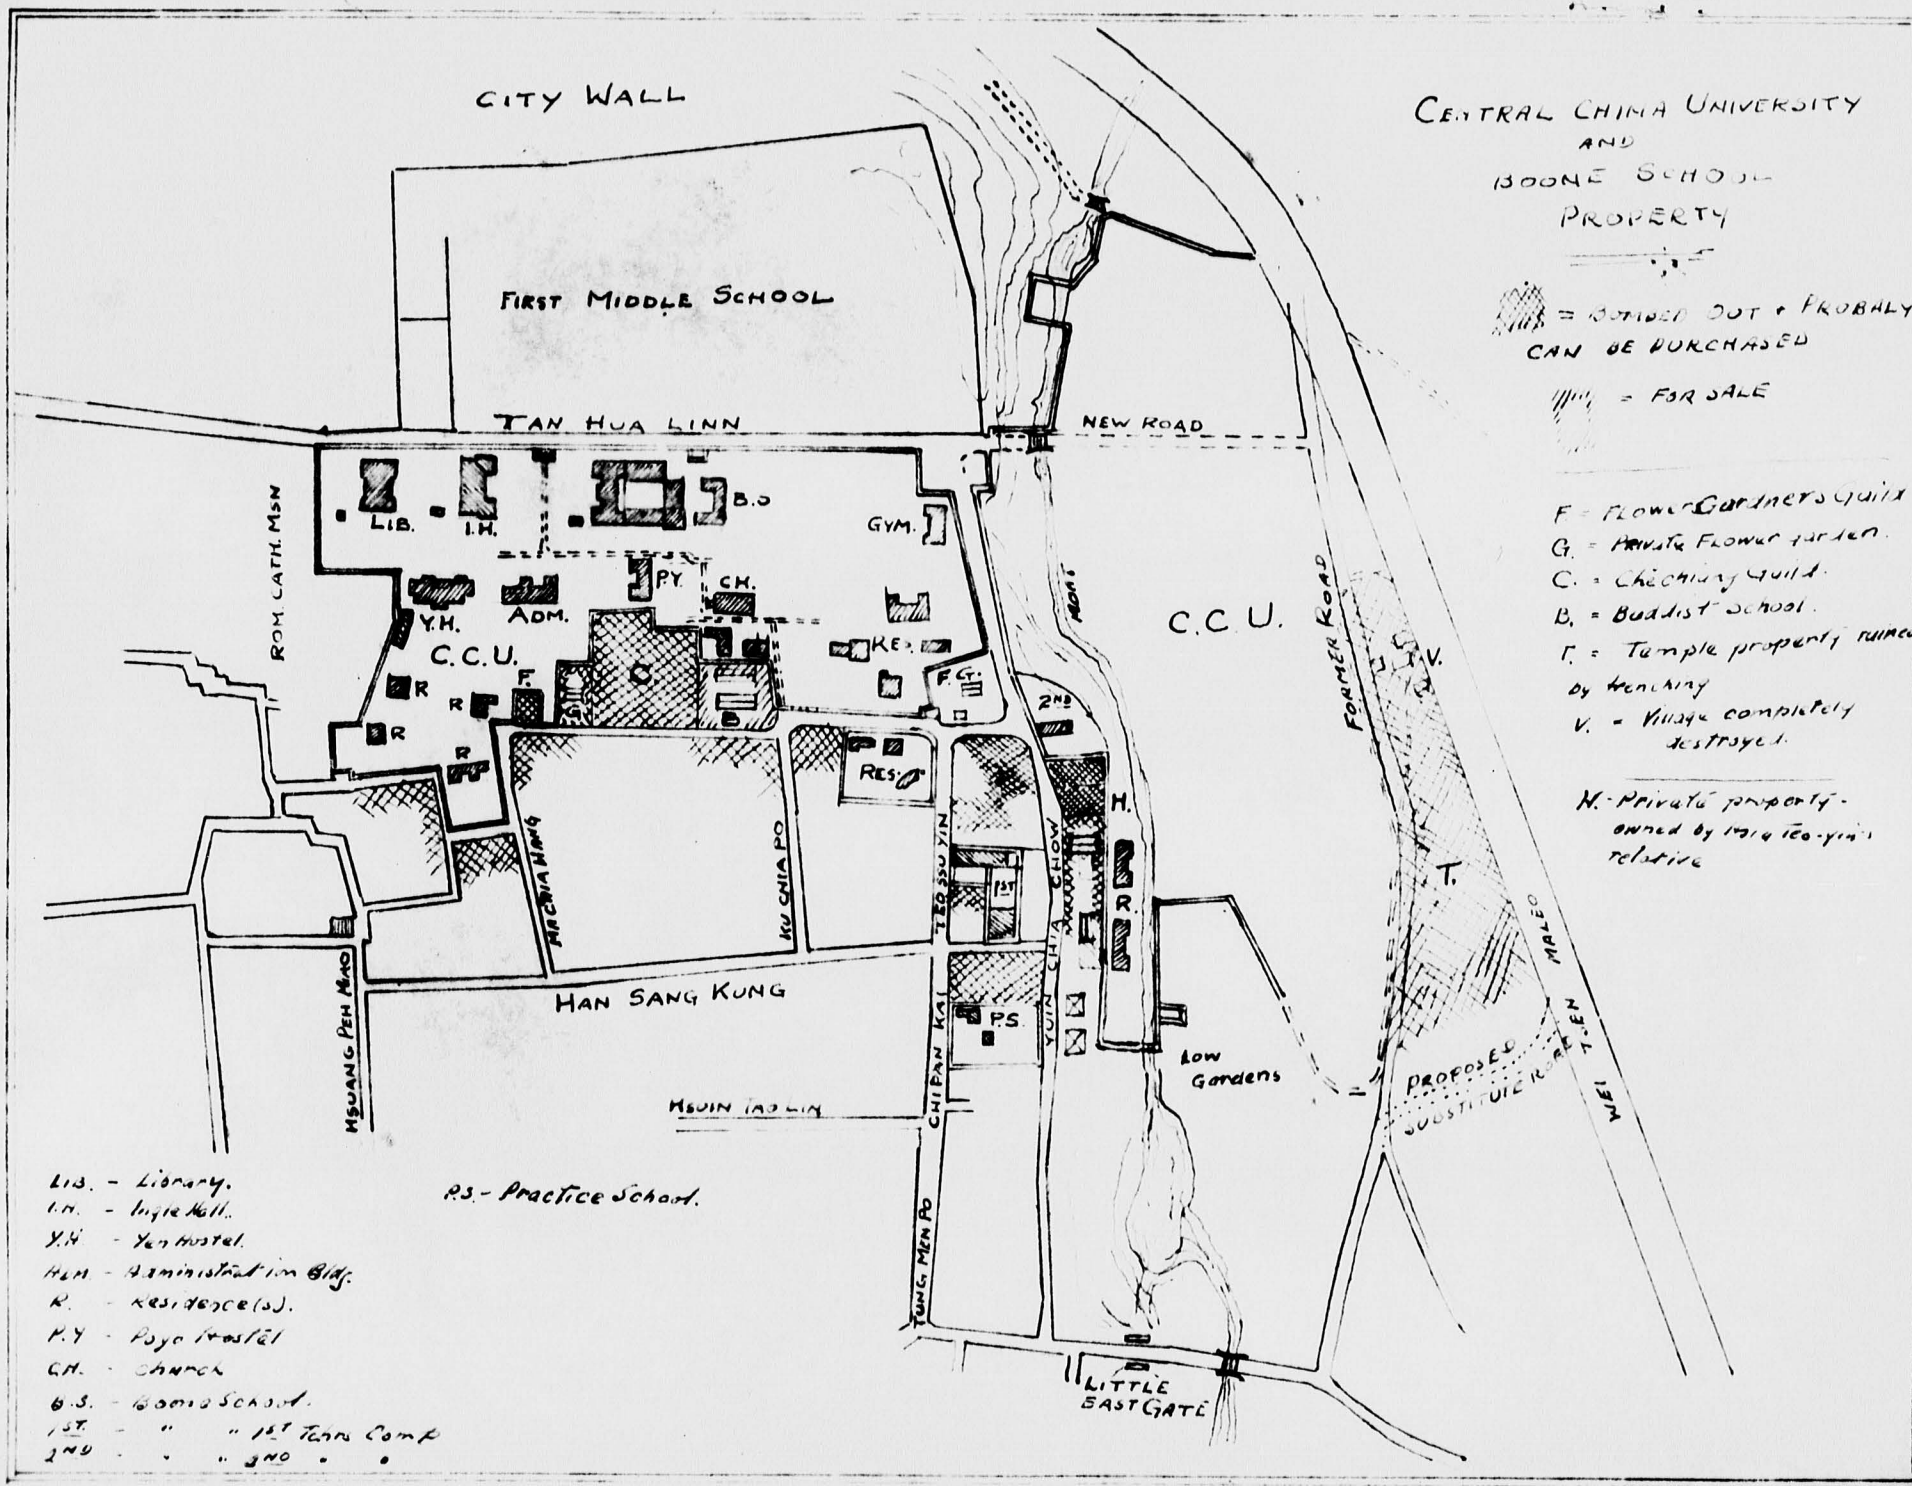 CITY WALL
CENTRAL CHINA UNIVERSITY
AND
BOONE SCHOOL
PROPERTY
= BOMBED OUT + PROBALY
CAN BE PURCHASED
= FOR SALE
F = Flower Gardners Guild
G. = Private Flower garden.
C. = Chechiang Guild.
B. = Buddist School.
T. = Temple property ruined
by trenching
V. = Village completely
destroyed.
H. - Private property -
owned by
relative
FIRST MIDDLE SCHOOL
TAN HUA LINN
NEW ROAD
ROM. CATH. MSN
LIB.
I.H.
B.S
GYM.
Y.H.
ADM.
P.Y.
CH.
C.C.U.
RES.
MOAT
C.C.U.
FORMER ROAD
V.
R
R
F.
G
C
B
F.G.
2ND
R
R
RES.
H.
MACHIA HANG
KU CHIA PO
TEO SSU YIN
1ST
YUIN CHIA CHOW
R.
T.
WEI TSEN MALEO
HSUANG PEH MIAO
HAN SANG KUNG
CHI PAN KAI
P.S.
LOW
Gardens
PROPOSED
SUBSTITUTE ROAD
HSUIN TAO LIN
TUNG MEN PO
LITTLE
EAST GATE
LIB. - Library.
I.H. - Ingle Hall.
Y.H - Yen Hostel.
ADM. - Administration Bldg.
R. - Residence(s).
P.Y - Poyu Hostel
CH. - Church
B.S. - Boone School.
1ST. - " " 1ST Tchrs Comp
2ND - " " 2ND " "
P.S. - Practice School.